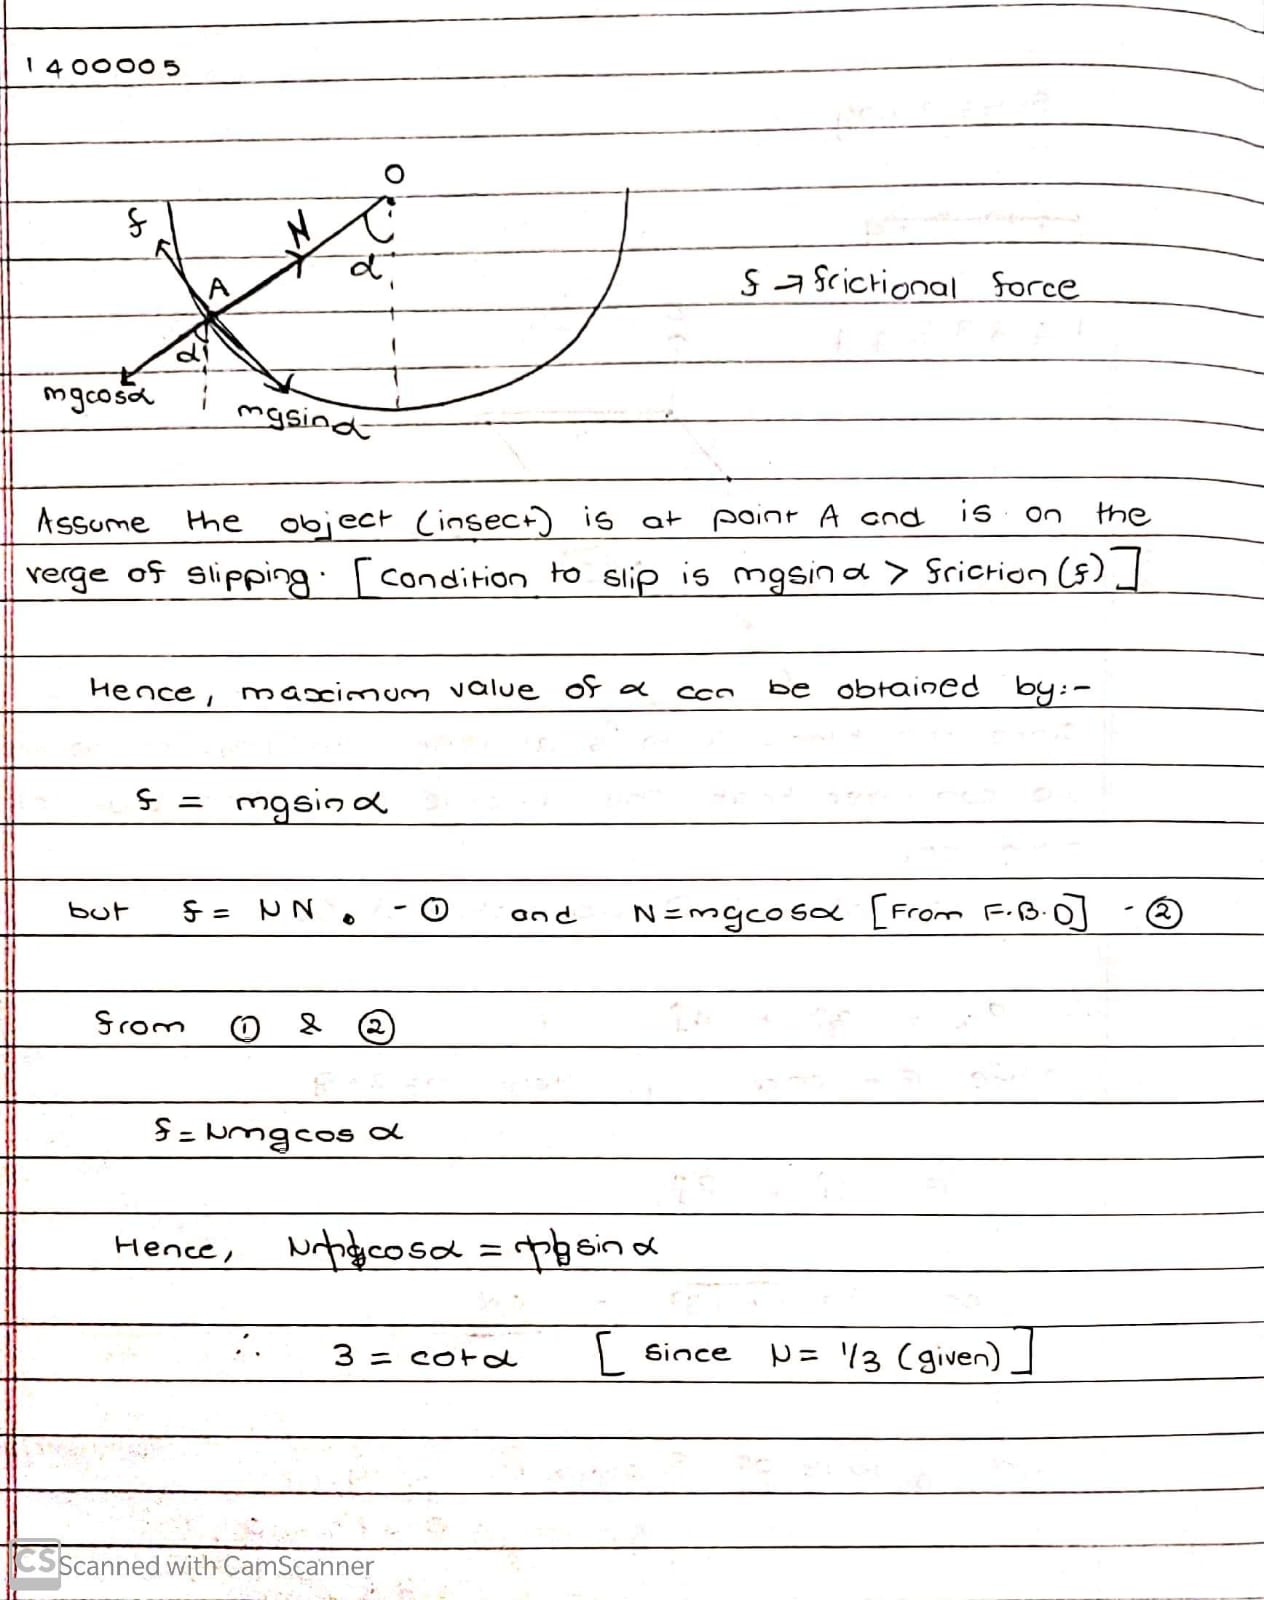 1400005
O
f
N
A
α
f → frictional force
α
mgcosα
mgsinα
Assume the object (insect) is at point A and is on the
verge of slipping. [condition to slip is mgsinα > friction (f)]
Hence, maximum value of α can be obtained by:-
f = mgsinα
but f = μN . - ① and N=mgcosα [From F.B.D] - ②
from ① & ②
f = μmgcos α
Hence, μmgcosα = mgsinα
∴ 3 = cotα [since μ = 1/3 (given)]
CS Scanned with CamScanner